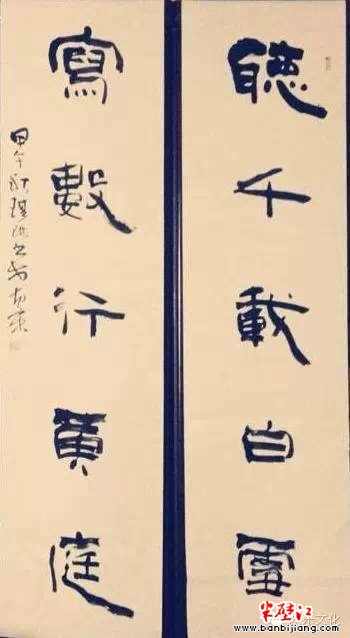 聽千載白雪
寫數行黃庭
甲午秋
半壁江
www.banbijiang.com
文化